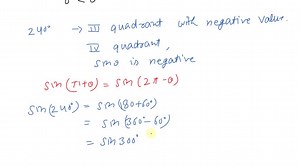 240° → III quadrant with negative value.
IV quadrant,
sinθ is negative
sin(π+θ) = sin(2π-θ)
sin(240°) = sin(180+60°)
= sin(360°-60°)
= sin 300°